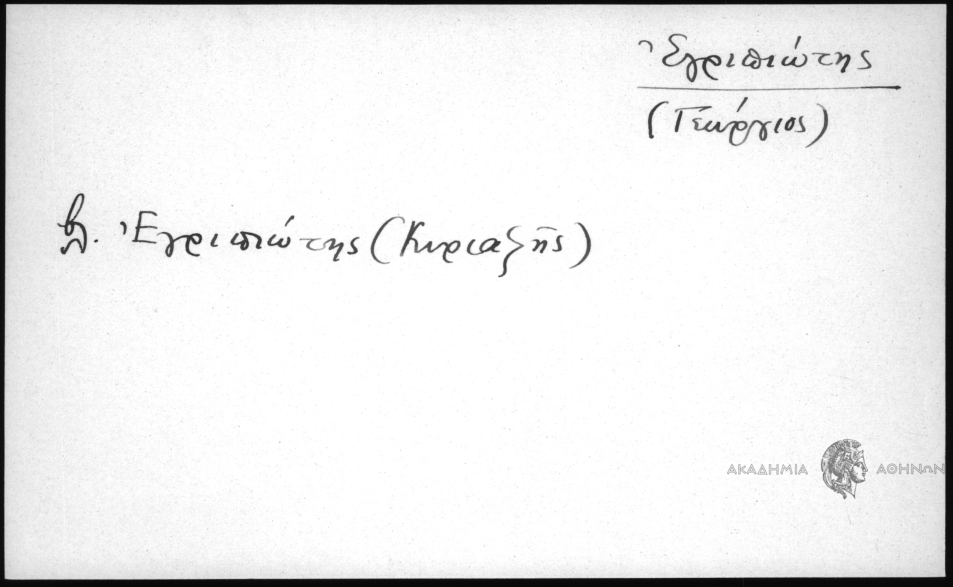 Ἐγριπιώτης
(Γεώργιος)
βλ. Ἐγριπιώτης (Κυριαζῆς)
ΑΚΑΔΗΜΙΑ ΑΘΗΝΩΝ